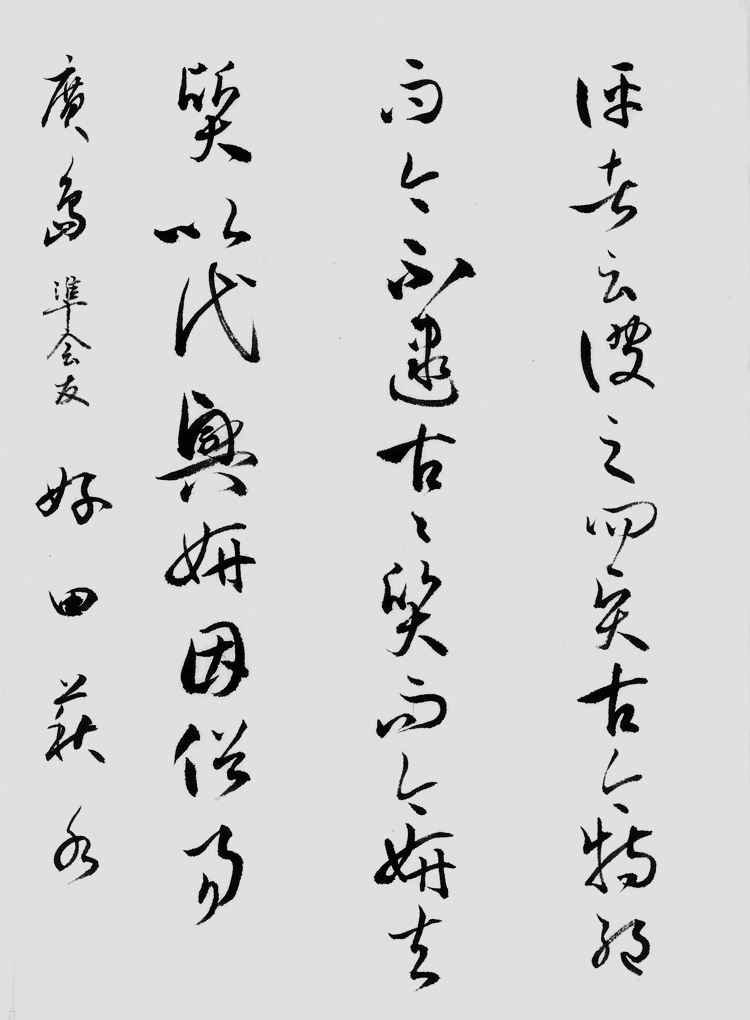 評者云彼之四賢古今特絶
而今不逮古々質而今妍夫
質以代興妍因俗易
廣島 準会友 好田荻水